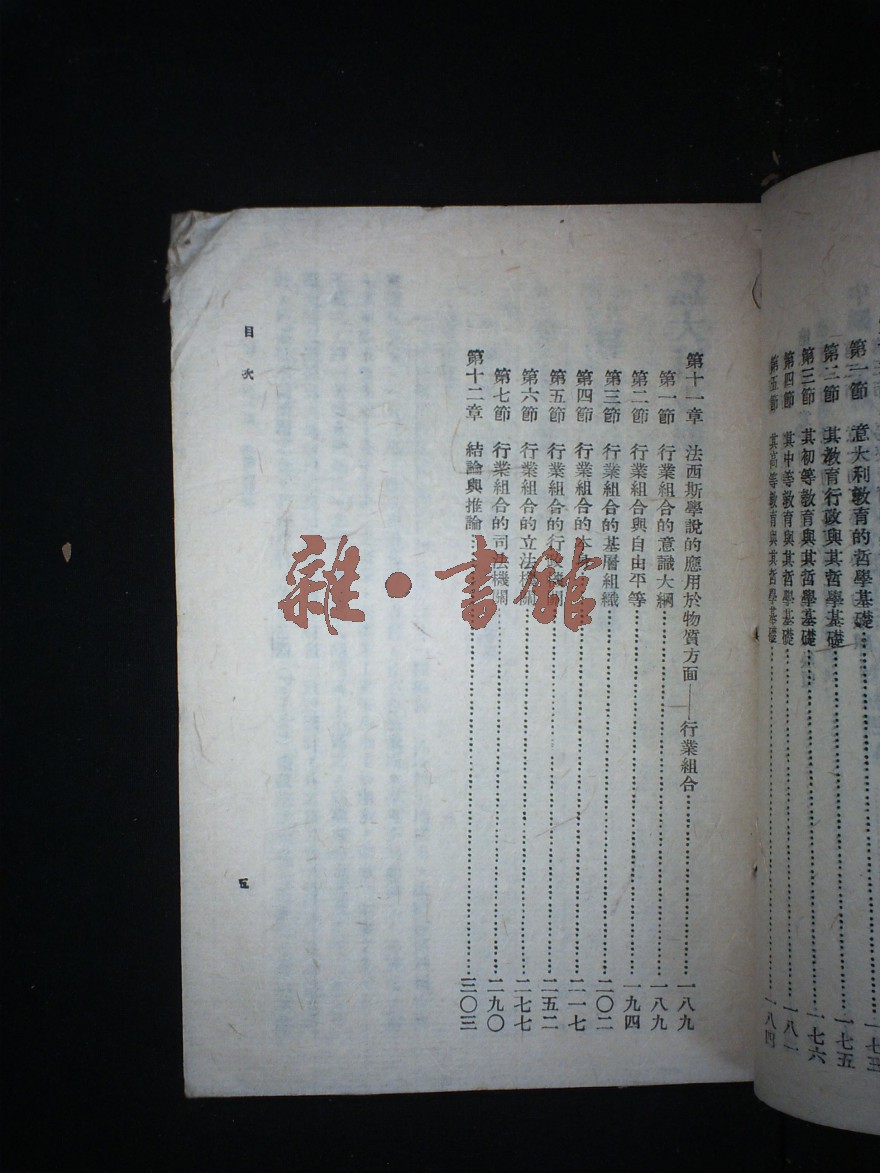 第一節　意大利教育的哲學基礎……一七三
第二節　其教育行政與其哲學基礎……一七五
第三節　其初等教育與其哲學基礎……一七六
第四節　其中等教育與其哲學基礎……一八一
第五節　其高等教育與其哲學基礎……一八四
第十一章　法西斯學說的應用於物質方面——行業組合……一八九
第一節　行業組合的意識大綱……一八九
第二節　行業組合與自由平等……一九四
第三節　行業組合的基層組織……二〇二
第四節　行業組合的本身……二一七
第五節　行業組合的行政機關……二五二
第六節　行業組合的立法機關……二七七
第七節　行業組合的司法機關……二九〇
第十二章　結論與推論……三〇三
目次
五
雜·書館